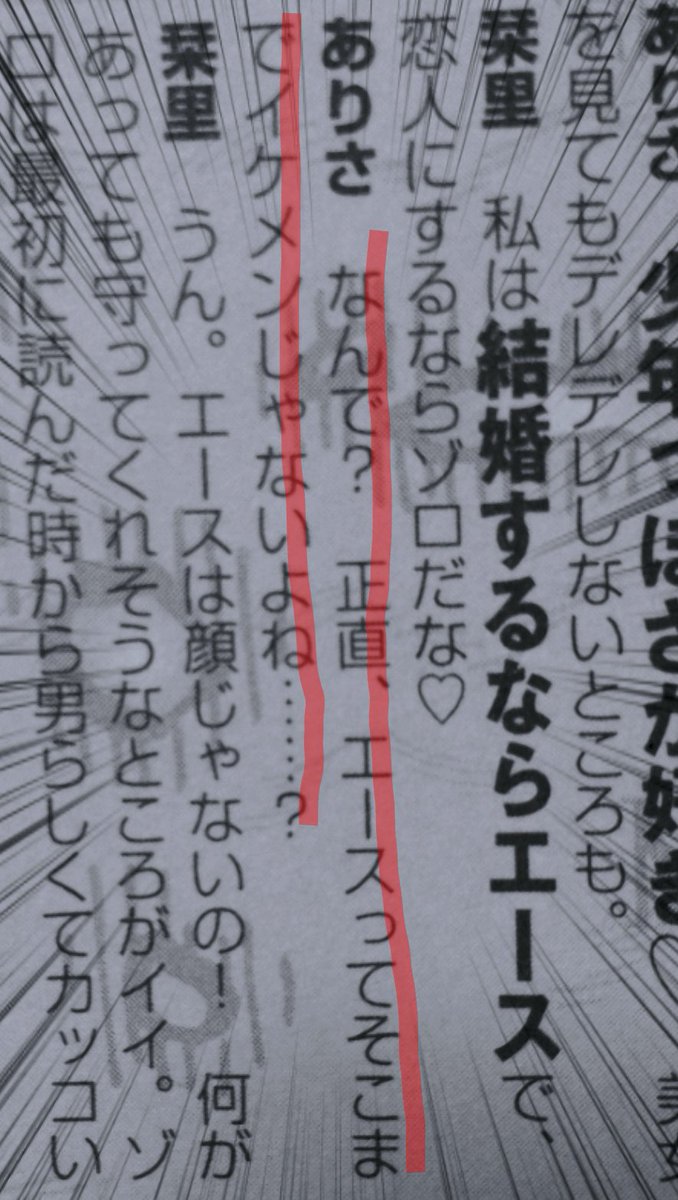 ありさ 少年っぽさが好き♡
を見てもデレデレしないところも。
栞里 私は結婚するならエースで、
恋人にするならゾロだな♡
ありさ なんで? 正直、エースってそこま
でイケメンじゃないよね………?
栞里 うん。エースは顔じゃないの! 何が
あっても守ってくれそうなところがイイ。ゾ
ロは最初に読んだ時から男らしくてカッコい